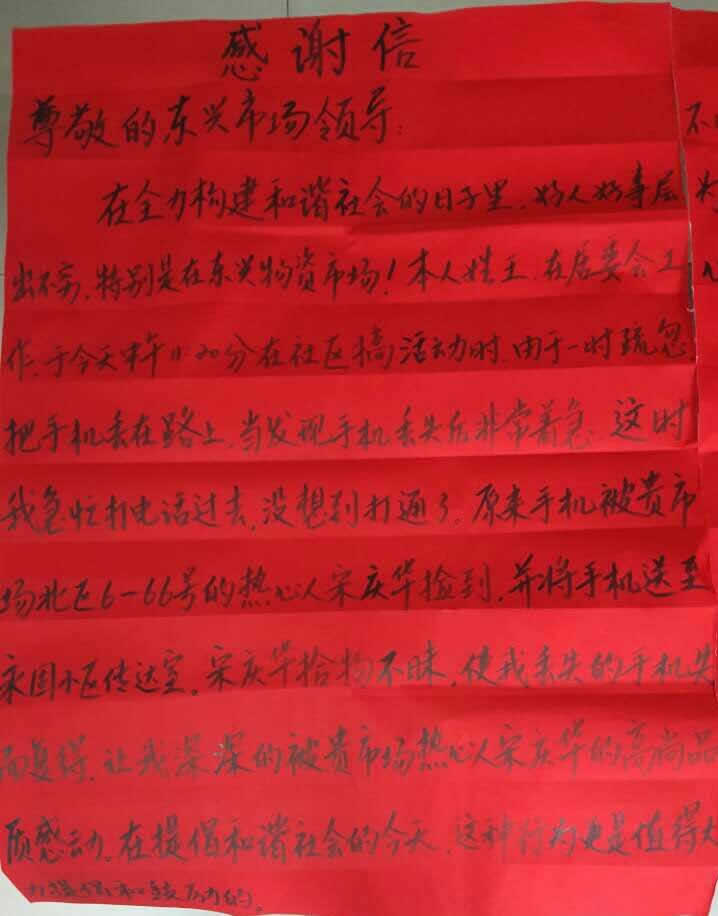 感谢信
尊敬的东兴市场领导：
在全力构建和谐社会的日子里，好人好事层
出不穷，特别是在东兴物资市场！本人姓王，在居委会工
作，于今天中午11:20分在社区搞活动时，由于一时疏忽
把手机丢在路上，当发现手机丢失后非常着急，这时
我急忙打电话过去，没想到打通了，原来手机被贵市
场北区6-66号的热心人宋庆华捡到，并将手机送至
家园小区传达室，宋庆华拾物不昧，使我丢失的手机失
而复得，让我深深的被贵市场热心人宋庆华的高尚品
质感动，在提倡和谐社会的今天，这种行为更是值得大
力提倡和鼓励的。
不